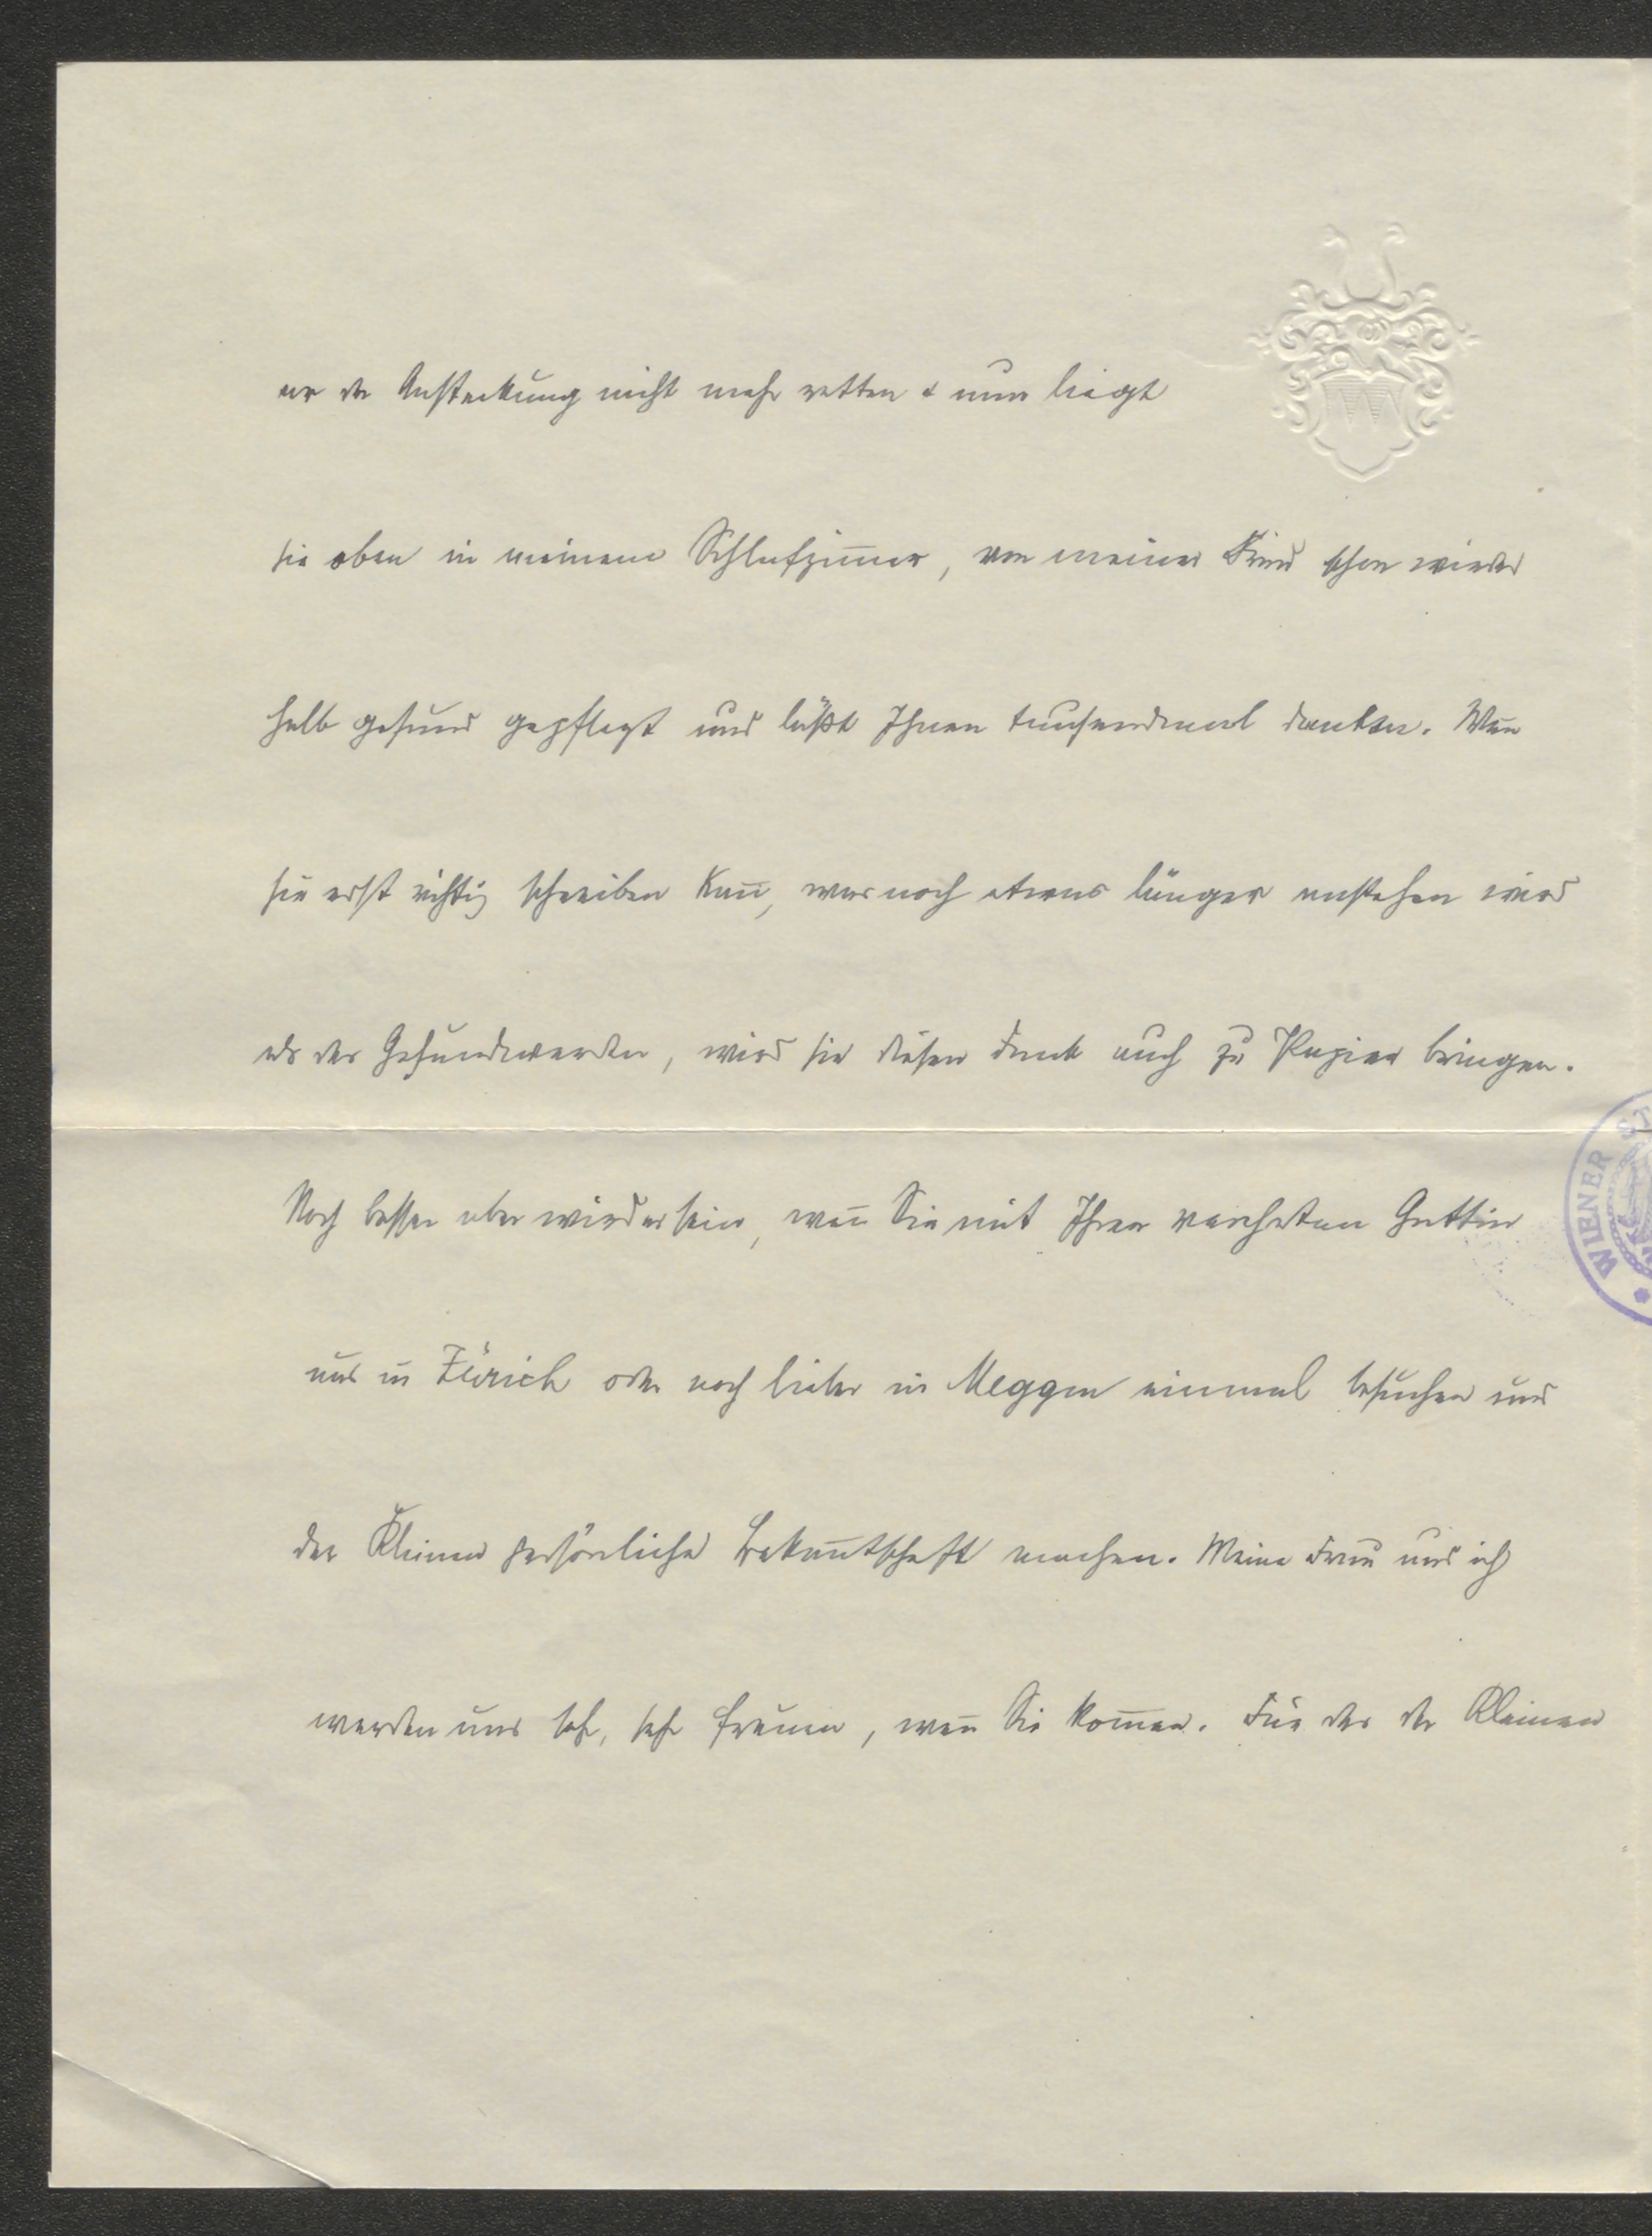 vor der Ansteckung nicht mehr retten & nun liegt
sie oben in meinem Schlafzim̅er, von meiner Frau schon wieder
halb gesund gepflegt und läßt Ihnen tausendmal danken. Wen̅
sie erst richtig schreiben kan̅, was noch etwas länger anstehen wird
als das Gesundwerden, wird sie diesen Dank auch zu Papier bringen.
Noch besser aber wird es sein, wen̅ Sie mit Ihrer verehrten Gattin
uns in Zürich oder noch lieber in Meggen einmal besuchen und
der Kleinen persönliche Bekan̅tschaft machen. Meine Frau und ich
werden uns sehr, sehr freuen, wen̅ Sie kom̅en. Für das der Kleinen
WIENER ST